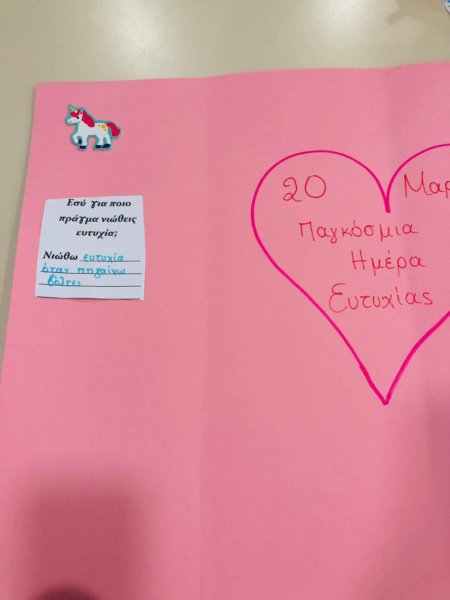 Εσύ για ποιο
πράγμα νιώθεις
ευτυχία;
Νιώθω ευτυχία
όταν πηγαίνω
βόλτες
20 Μαρ
Παγκόσμια
Ημέρα
Ευτυχίας